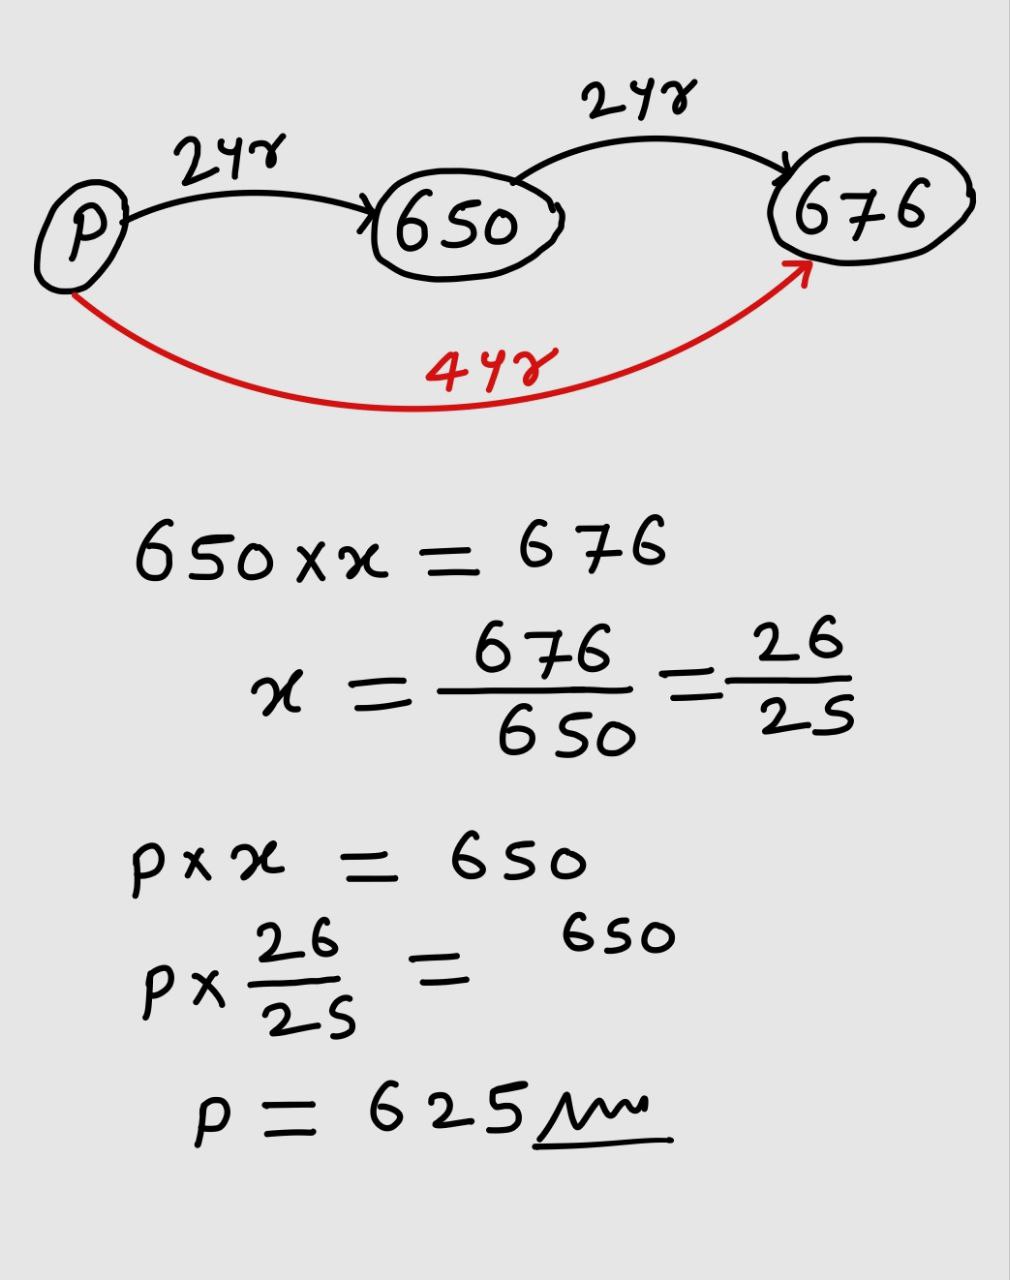 2yr
2yr
P
650
676
4yr
650 × x = 676
x = 676/650 = 26/25
P × x = 650
P × 26/25 = 650
P = 625